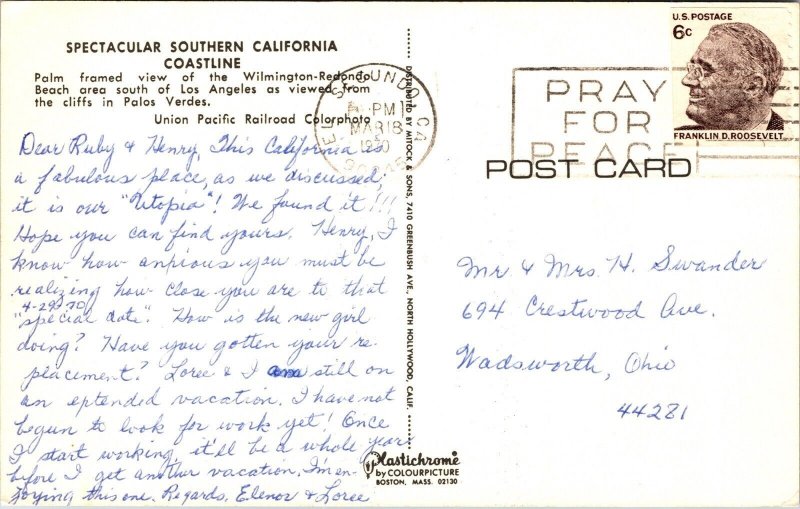 SPECTACULAR SOUTHERN CALIFORNIA
COASTLINE
Palm framed view of the Wilmington-Redondo
Beach area south of Los Angeles as viewed from
the cliffs in Palos Verdes.
Union Pacific Railroad Colorphoto
Dear Ruby & Henry, This California is
a fabulous place, as we discussed,
it is our "Utopia"! We found it!!!
Hope you can find yours. Henry, I
know how anxious you must be
realizing how close you are to that
4-29-70
"special date". How is the new girl
doing? Have you gotten your re-
placement? Loree & I am still on
an extended vacation. I have not
begun to look for work yet! Once
I start working, it'll be a whole year
before I get another vacation. I'm en-
joying this one. Regards, Elenor & Loree
DISTRIBUTED BY MITOCK & SONS, 7410 GREENBUSH AVE. NORTH HOLLYWOOD, CALIF.
Plastichrome
by COLOURPICTURE
BOSTON, MASS. 02130
EL SEGUNDO, CA
PM
MAR 18
1970
PRAY
FOR
PEACE
U.S. POSTAGE
6c
FRANKLIN D. ROOSEVELT
POST CARD
Mr & Mrs. H. Swander
694 Crestwood Ave.
Wadsworth, Ohio
44281